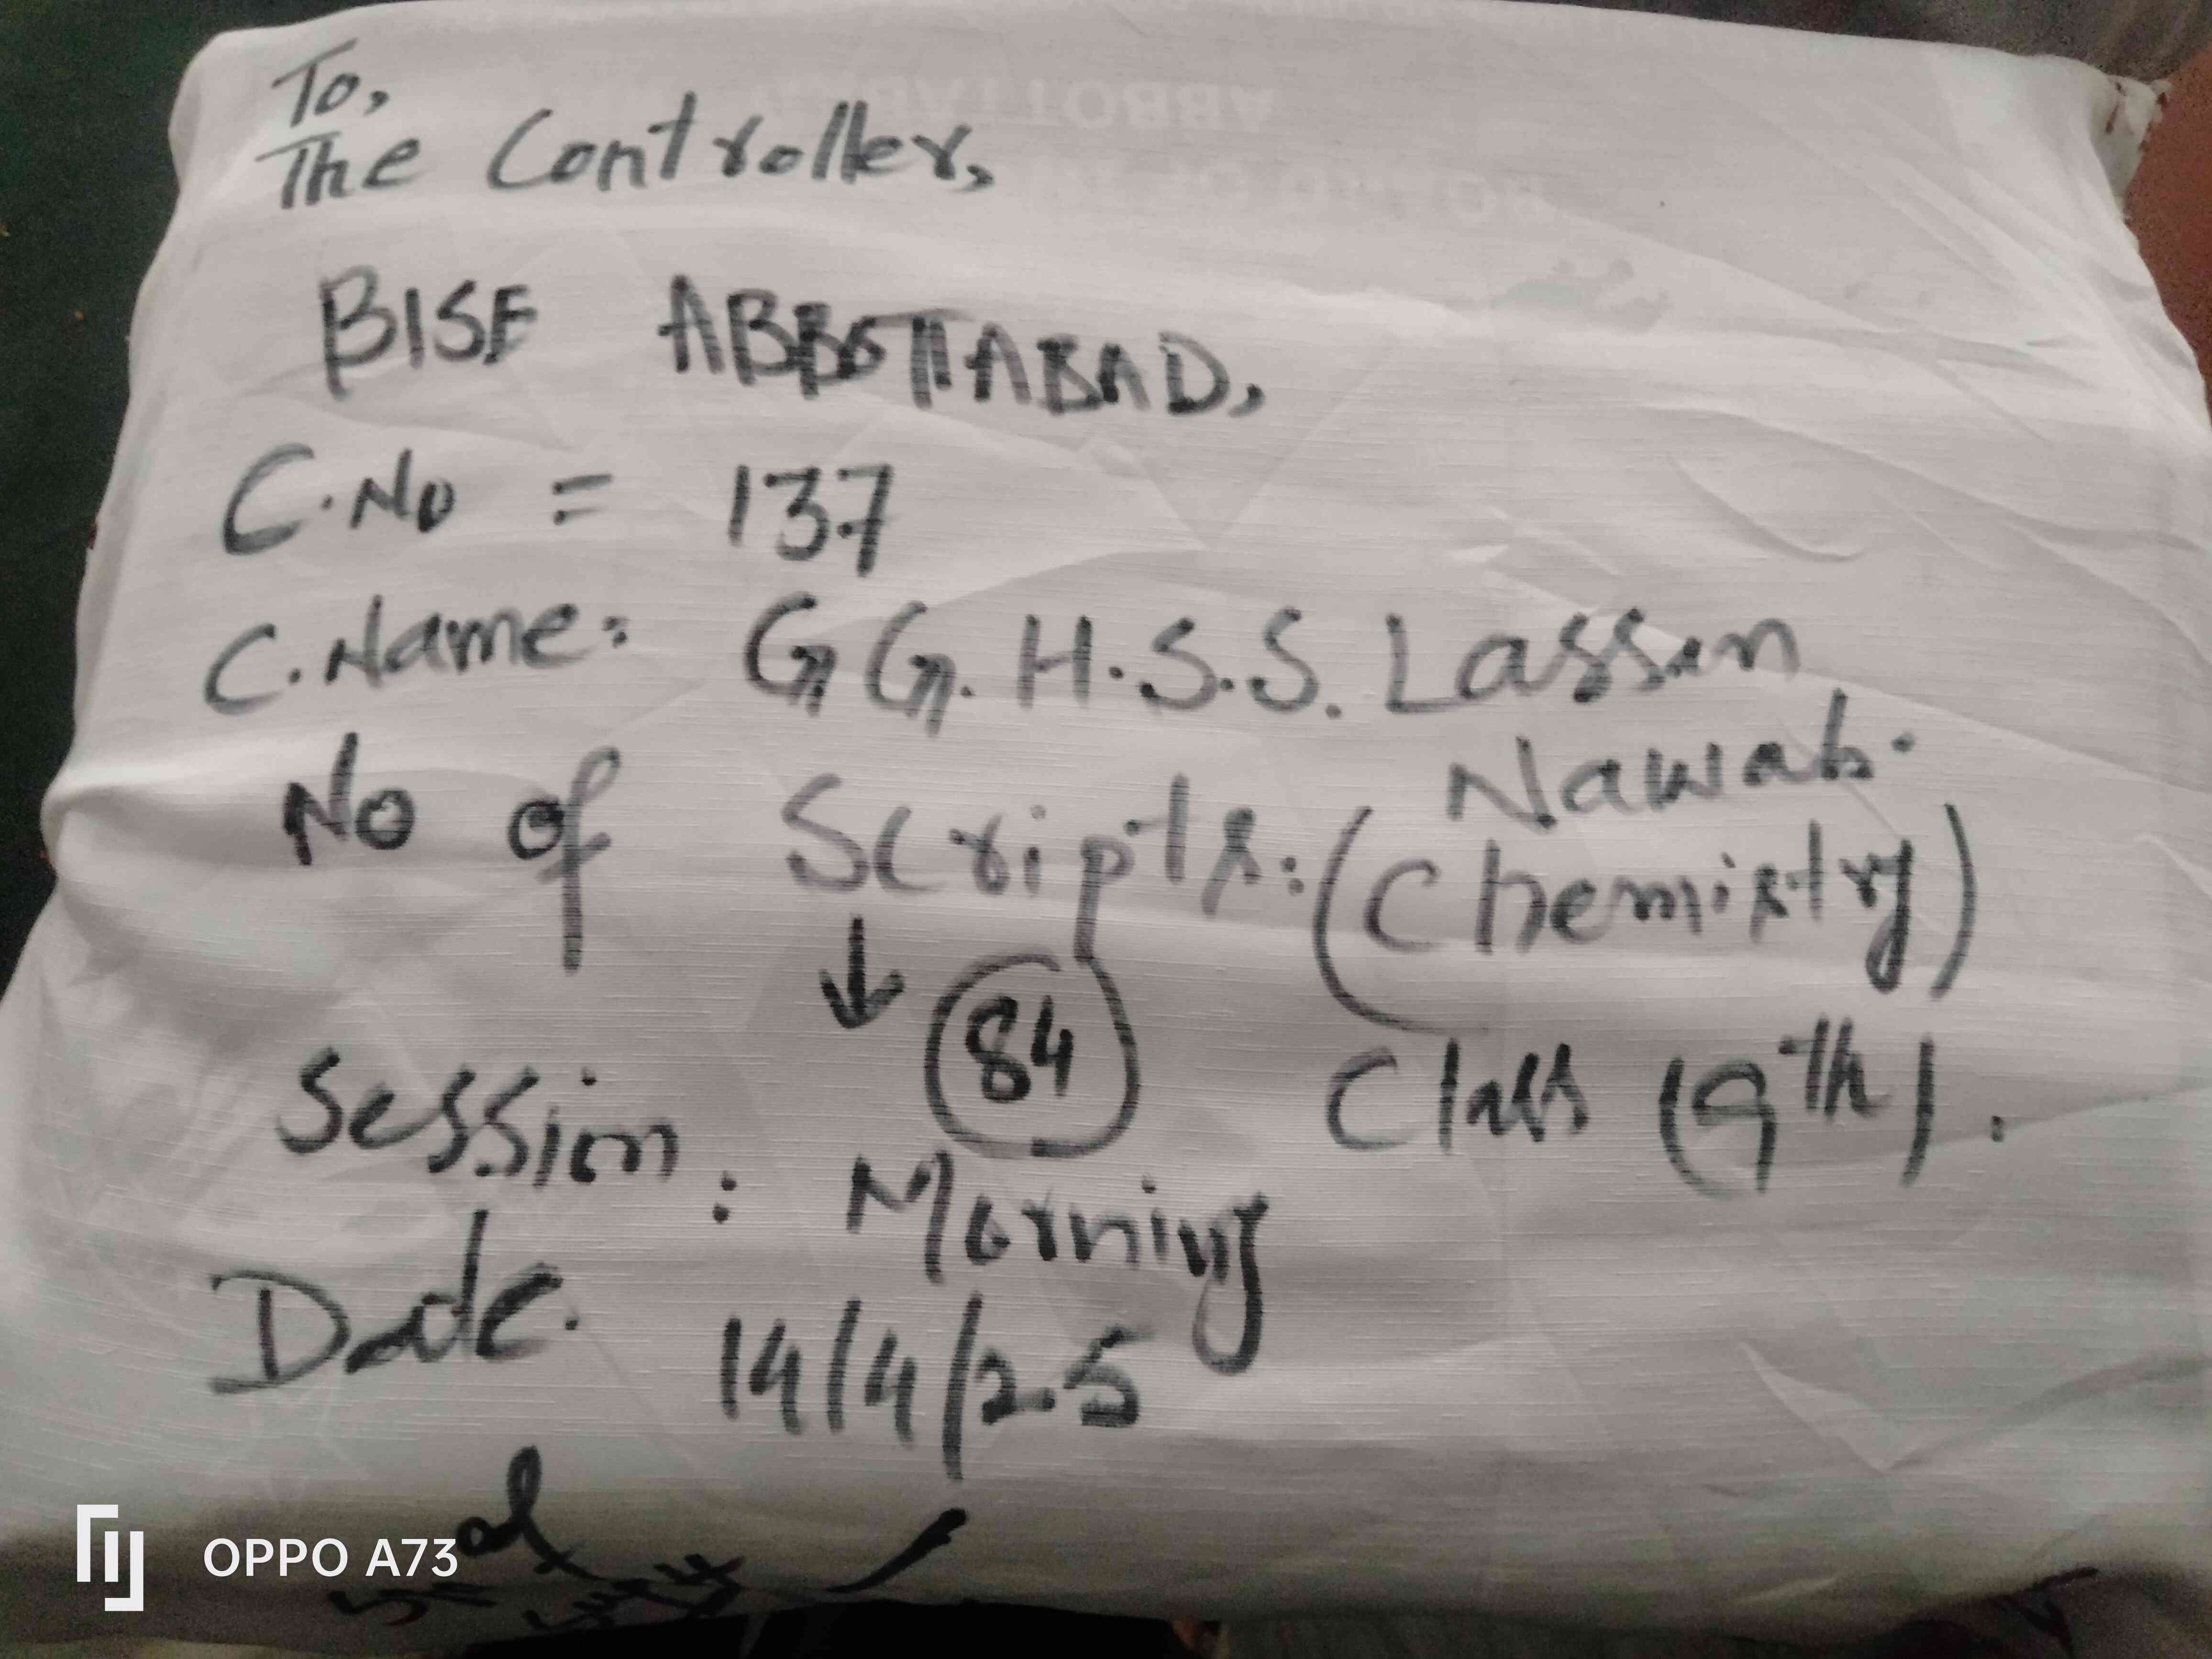 To,
The Controller,
BISE ABBOTTABAD,
C.No = 137
C.Name: G.G.H.S.S. Lassan
Nawab.
No of Scripts: (Chemistry)
↓ 84 Class (9th).
Session: Morning
Date. 14/4/25
OPPO A73